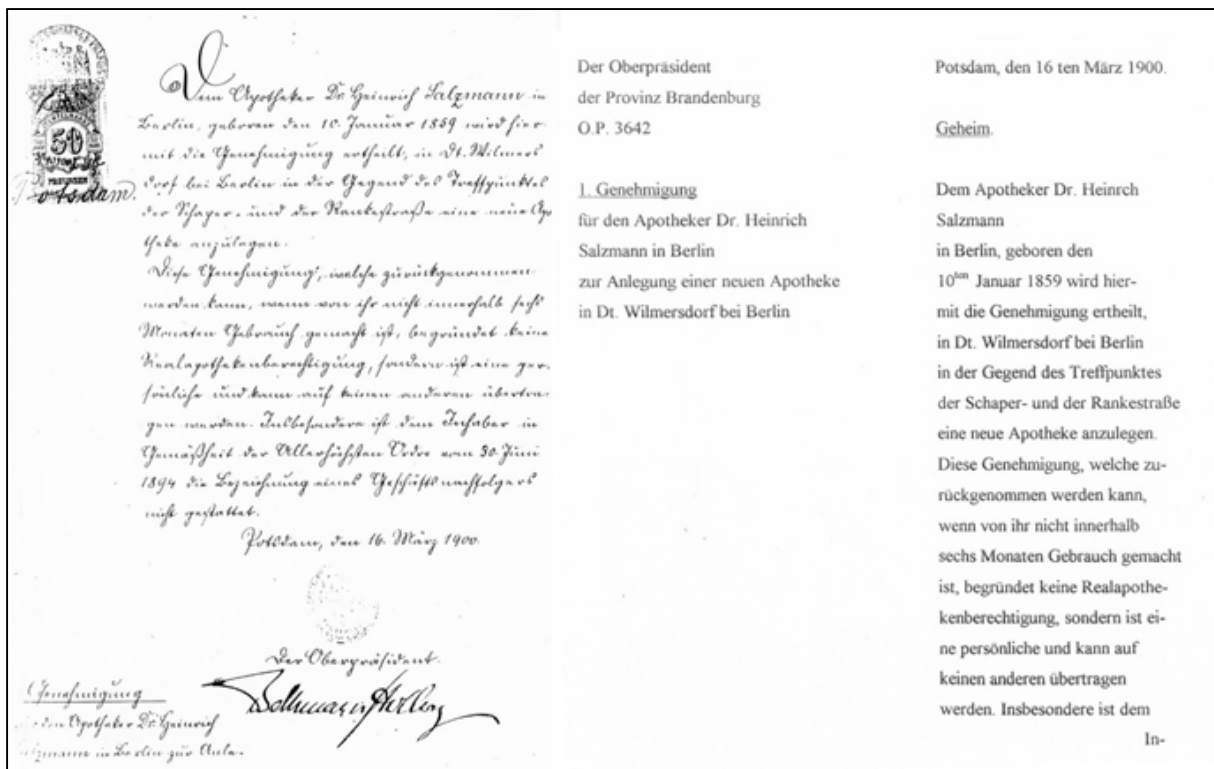 50
PREUSSEN
Potsdam.
Dem Apotheker Dr. Heinrich Salzmann in
Berlin, geboren den 10. Januar 1859 wird hier-
mit die Genehmigung ertheilt, in Dt. Wilmers
dorf bei Berlin in der Gegend des Treffpunktes
der Schaper- und der Rankestraße eine neue Apo
theke anzulegen.
Diese Genehmigung, welche zurückgenommen
werden kann, wenn von ihr nicht innerhalb sechs
Monaten Gebrauch gemacht ist, begründet keine
Realapothekenberechtigung, sondern ist eine per-
sönliche und kann auf keinen anderen übertra-
gen werden. Insbesondere ist dem Inhaber in
Gemäßheit der Allerhöchsten Ordre vom 30. Juni
1894 die Bezeichnung eines Geschäftsnachfolgers
nicht gestattet.
Potsdam, den 16. März 1900.
Der Oberpräsident.
Bethmann Hollweg
Genehmigung
den Apotheker Dr. Heinrich
Salzmann in Berlin zur Anle-
Der Oberpräsident
der Provinz Brandenburg
O.P. 3642
1. Genehmigung
für den Apotheker Dr. Heinrich
Salzmann in Berlin
zur Anlegung einer neuen Apotheke
in Dt. Wilmersdorf bei Berlin
Potsdam, den 16 ten März 1900.
Geheim.
Dem Apotheker Dr. Heinrch
Salzmann
in Berlin, geboren den
10ten Januar 1859 wird hier-
mit die Genehmigung ertheilt,
in Dt. Wilmersdorf bei Berlin
in der Gegend des Treffpunktes
der Schaper- und der Rankestraße
eine neue Apotheke anzulegen.
Diese Genehmigung, welche zu-
rückgenommen werden kann,
wenn von ihr nicht innerhalb
sechs Monaten Gebrauch gemacht
ist, begründet keine Realapothe-
kenberechtigung, sondern ist ei-
ne persönliche und kann auf
keinen anderen übertragen
werden. Insbesondere ist dem
In-